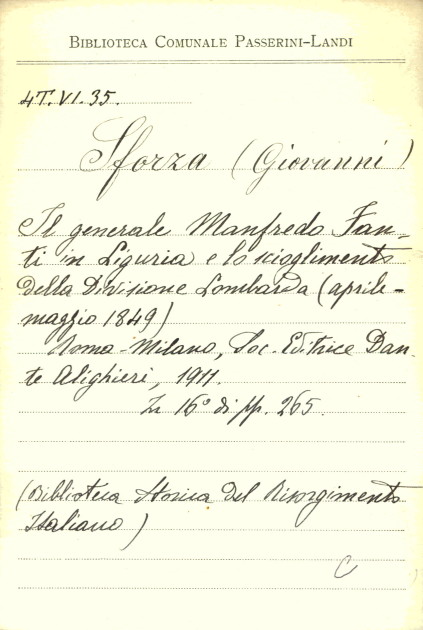 BIBLIOTECA COMUNALE PASSERINI-LANDI
4T.VI.35.
Sforza (Giovanni)
Il generale Manfredo Fan-
ti in Liguria e lo scioglimento
della Divisione Lombarda (aprile-
maggio 1849)
Roma-Milano, Soc. Editrice Dan-
te Alighieri, 1911.
In 16° di pp. 265.
(Biblioteca Storica del Risorgimento
Italiano)
C